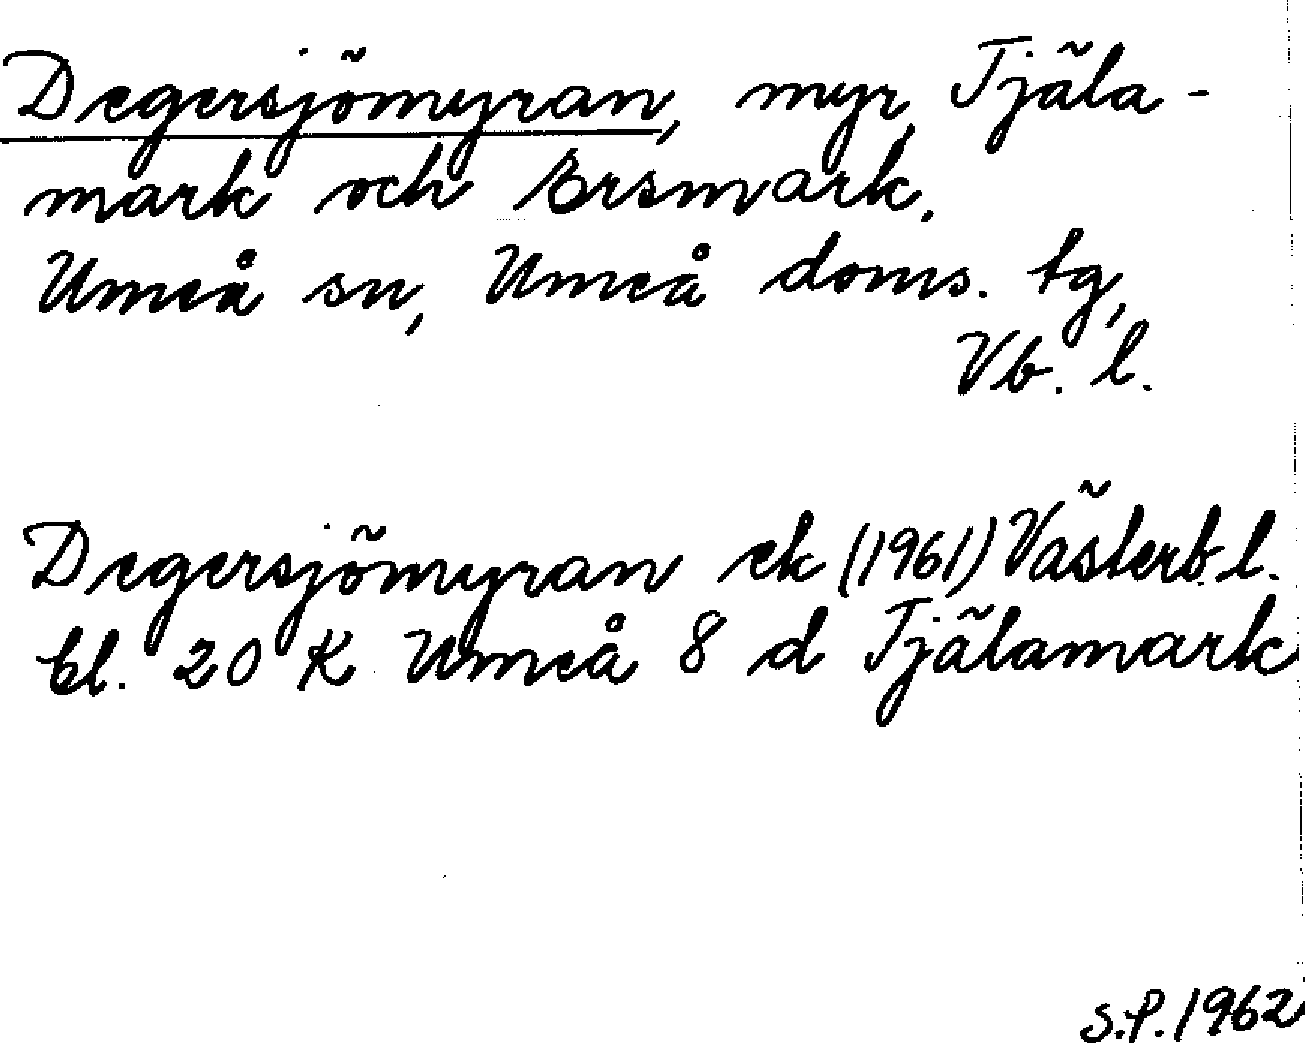 Degersjömyran, myr, Tjäla-
mark och Brsmark.
Umeå sn, Umeå doms. tg,
Vb. l.
Degersjömyran ek (1961) Västerb. l.
bl. 20 K Umeå 8 d Tjälamark
S.P. 1962